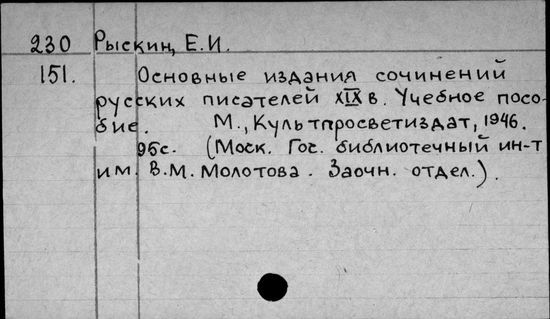 230 Рыскин, Е.И.
151. Основные издания сочинений
русских писателей XIX в. Учебное посо-
бие. М., Культпросветиздат, 1946.
96с. (Моск. Гос. библиотечный ин-т
им. В.М. Молотова. Заочн. отдел.).